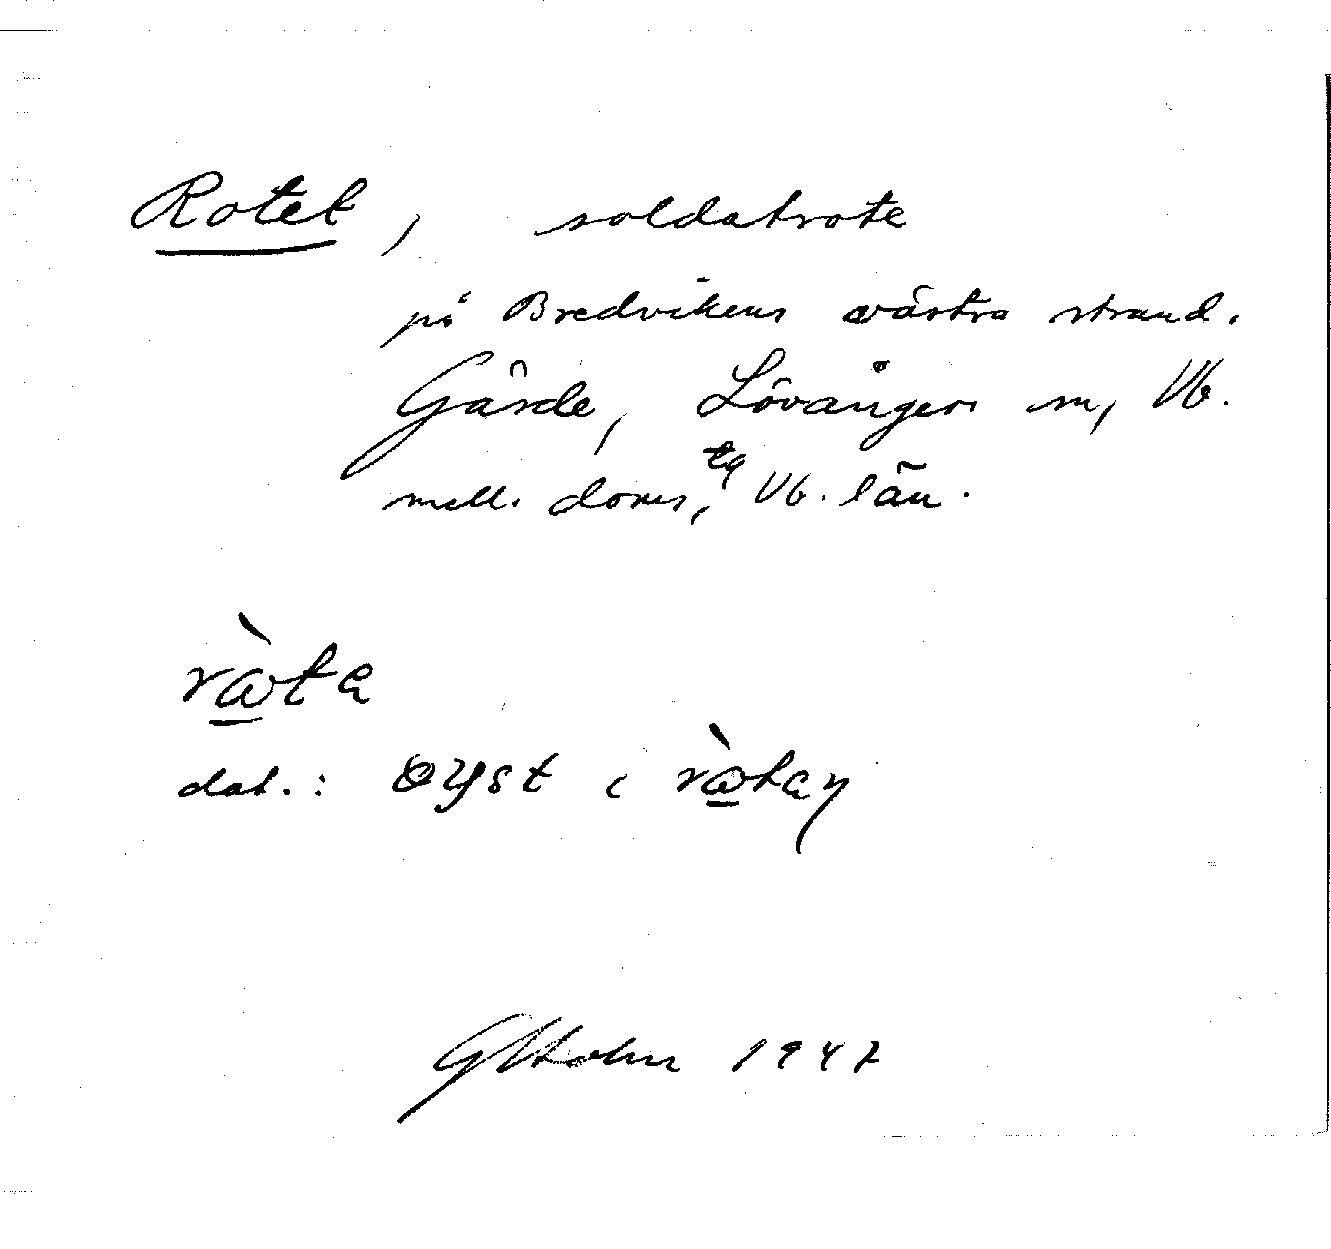 Rotet, soldatrote
på Bredvikens västra strand.
Gärde, Lövångers sn, Vb.
mell. doms, tg Vb. län.
ràta
dat.: øyst i
GHolm 1947